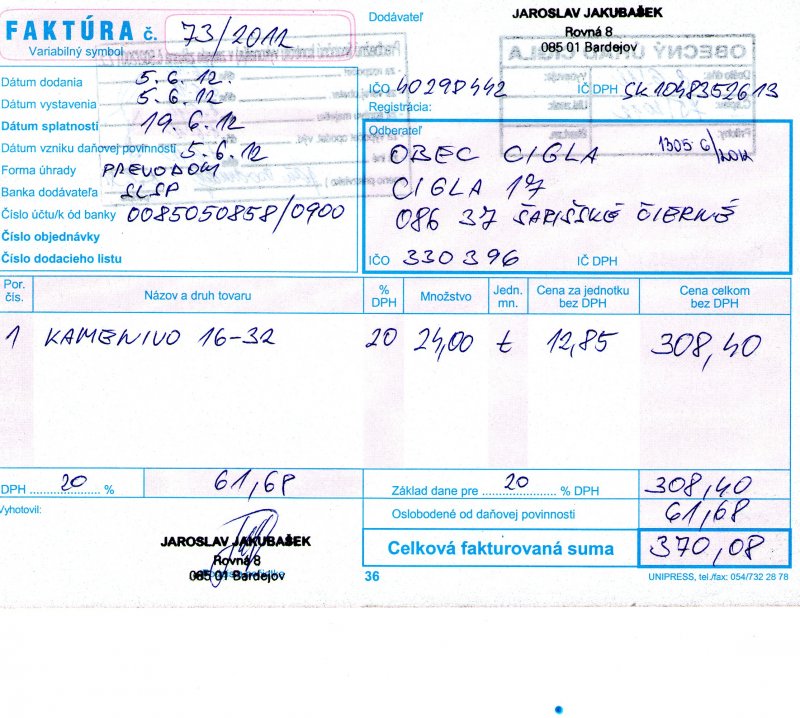 FAKTÚRA č. 73/2012
Variabilný symbol
Dodávateľ
JAROSLAV JAKUBAŠEK
Rovná 8
085 01 Bardejov
Dátum dodania 5.6.12.
Dátum vystavenia 5.6.12
Dátum splatnosti 19.6.12
Dátum vzniku daňovej povinnosti 5.6.12
Forma úhrady PREVODOM
Banka dodávateľa SLSP
Číslo účtu/k ód banky 0085050858/0900
Číslo objednávky
Číslo dodacieho listu
IČO 40298442 IČ DPH SK1048352613
Registrácia:
OBECNÝ ÚRAD CIGLA
Odberateľ
OBEC CIGLA
CIGLA 17
086 37 ŠARIŠSKÉ ČIERNÉ
IČO 330396 IČ DPH
Por. čís. Názov a druh tovaru % DPH Množstvo Jedn. mn. Cena za jednotku bez DPH Cena celkom bez DPH
1 KAMENIVO 16-32 20 24,00 t 12,85 308,40
DPH 20 % 61,68
Základ dane pre 20 % DPH 308,40
Oslobodené od daňovej povinnosti 61,68
Celková fakturovaná suma 370,08
Vyhotovil:
JAROSLAV JAKUBAŠEK
Rovná 8
085 01 Bardejov
36
UNIPRESS, tel./fax: 054/732 28 78